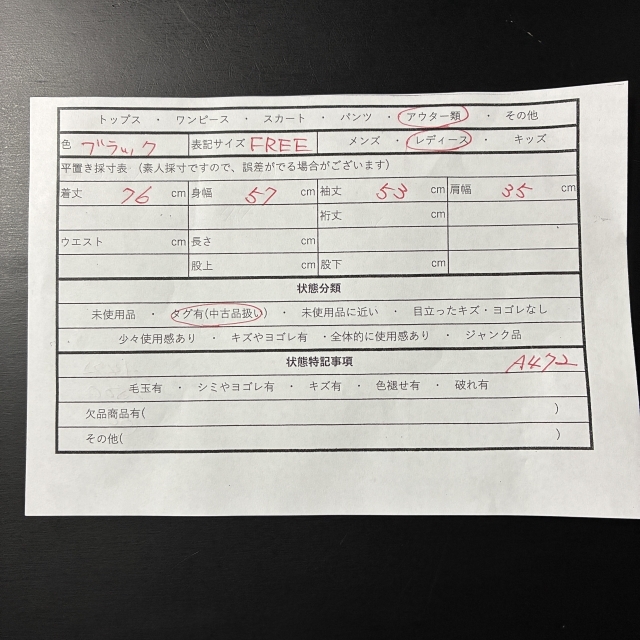 トップス ・ ワンピース ・ スカート ・ パンツ ・ アウター類 ・ その他
色 ブラック 表記サイズ FREE メンズ ・ レディース ・ キッズ
平置き採寸表（素人採寸ですので、誤差がでる場合がございます）
着丈 76 cm 身幅 57 cm 袖丈 53 cm 肩幅 35 cm
裄丈 cm
ウエスト cm 長さ cm
股上 cm 股下 cm
状態分類
未使用品 ・ タグ有(中古品扱い) ・ 未使用品に近い ・ 目立ったキズ・ヨゴレなし
少々使用感あり ・ キズやヨゴレ有 ・全体的に使用感あり ・ ジャンク品
状態特記事項 A472
毛玉有 ・ シミやヨゴレ有 ・ キズ有 ・ 色褪せ有 ・ 破れ有
欠品商品有( )
その他( )